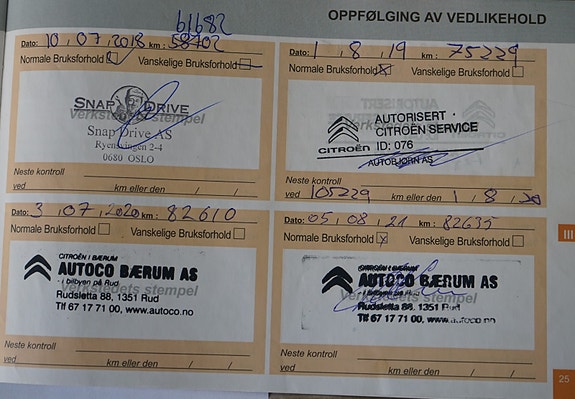 OPPFØLGING AV VEDLIKEHOLD
61682
Dato: 10, 07, 2018 km: 58702
Normale Bruksforhold Vanskelige Bruksforhold
SNAP DRIVE
Verkstedets stempel
Snap Drive AS
Ryensvingen 2-4
0680 OSLO
Neste kontroll
ved km eller den / /
Dato: 1, 8, 19 km: 75229
Normale Bruksforhold Vanskelige Bruksforhold
AUTORISERT
CITROËN SERVICE
CITROËN ID: 076
AUTOBJØRN AS
Neste kontroll
ved 105229 km eller den 1, 8, 20
Dato: 3, 07, 2020 km: 82610
Normale Bruksforhold Vanskelige Bruksforhold
CITROËN I BÆRUM
AUTOCO BÆRUM AS
- i bilbyen på Rud
Verkstedets stempel
Rudsletta 88, 1351 Rud
Tlf 67 17 71 00, www.autoco.no
Neste kontroll
ved km eller den / /
Dato: 05, 08, 21 km: 82635
Normale Bruksforhold Vanskelige Bruksforhold
CITROËN I BÆRUM
AUTOCO BÆRUM AS
- i bilbyen på Rud
Verkstedets stempel
Rudsletta 88, 1351 Rud
Tlf 67 17 71 00, www.autoco.no
Neste kontroll
ved km eller den / /
III
25